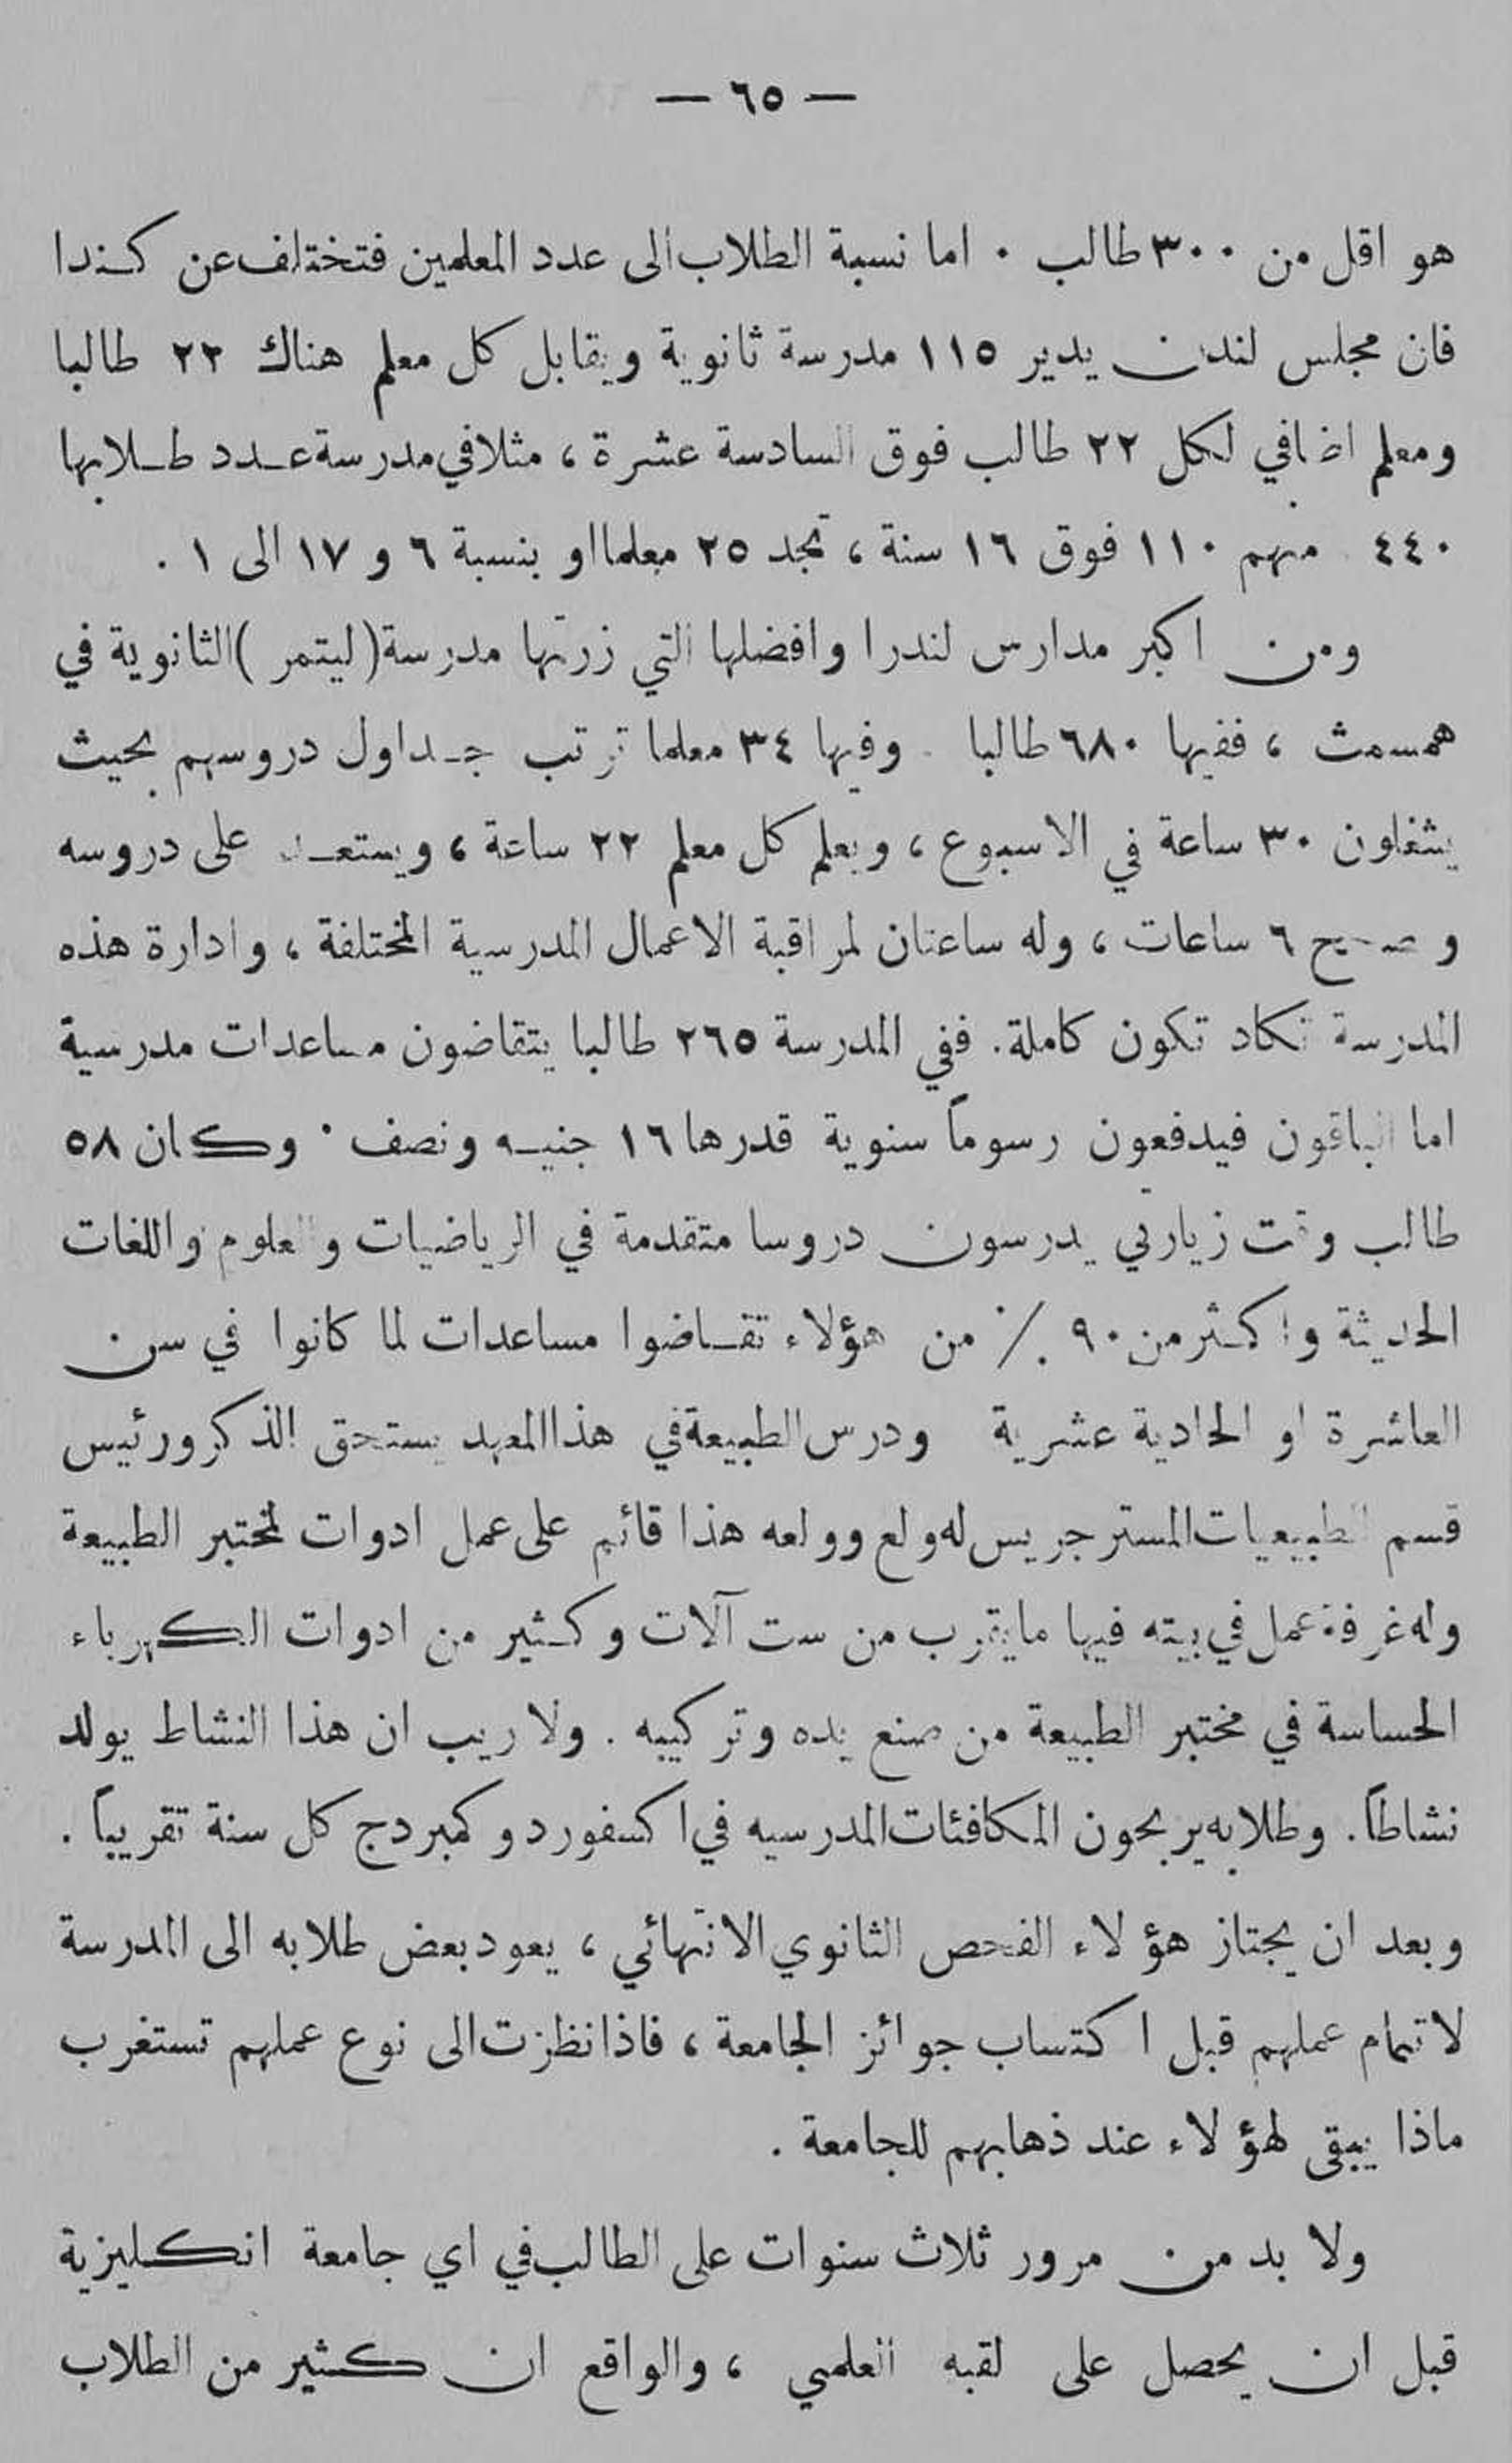 — ٦٥ —
هو اقل من ٣٠٠ طالب . اما نسبة الطلاب الى عدد المعلمين فتختلف عن كندا
فان مجلس لندن يدير ١١٥ مدرسة ثانوية ويقابل كل معلم هناك ٢٢ طالبا
ومعلم اضافي لكل ٢٢ طالب فوق السادسة عشرة ، مثلا في مدرسة عدد طلابها
٤٤٠ منهم ١١٠ فوق ١٦ سنة ، تجد ٢٥ معلما او بنسبة ٦ و ١٧ الى ١ .
ومن اكبر مدارس لندرا وافضلها التي زرتها مدرسة (ليتمر) الثانوية في
همسمث ، ففيها ٦٨٠ طالبا . وفيها ٣٤ معلما ترتب جداول دروسهم بحيث
يشغلون ٣٠ ساعة في الاسبوع ، ويعلم كل معلم ٢٢ ساعة ، على دروسه
٦ ساعات ، وله ساعتان لمراقبة الاعمال المدرسية المختلفة ، وادارة هذه
المدرسة تكاد تكون كاملة. ففي المدرسة ٢٦٥ طالبا يتقاضون مساعدات مدرسية
اما الباقون فيدفعون رسوماً سنوية قدرها ١٦ جنيه ونصف . وكان ٥٨
طالب وقت زيارتي يدرسون دروسا متقدمة في الرياضيات والعلوم واللغات
الحديثة واكثر من ٩٠ ٪ من هؤلاء تقاضوا مساعدات لما كانوا في سن
العاشرة او الحادية عشرية ودرس الطبيعة في هذا المعهد يستحق الذكر ورئيس
قسم الطبيعيات المستر جريس له ولع وولعه هذا قائم على عمل ادوات لمختبر الطبيعة
وله غرفة عمل في بيته فيها ما يقرب من ست آلات وكثير من ادوات الكهرباء
الحساسة في مختبر الطبيعة من صنع يده وتركيبه . ولا ريب ان هذا النشاط يولد
نشاطاً. وطلابه يربحون المكافئات المدرسيه في اكسفورد و كمبردج كل سنة تقريباً .
وبعد ان يجتاز هؤلاء الفحص الثانوي الانتهائي ، يعود بعض طلابه الى المدرسة
لاتمام عملهم قبل اكتساب جوائز الجامعة ، فاذا نظزت الى نوع عملهم تستغرب
ماذا يبقى لهؤلاء عند ذهابهم للجامعة .
ولا بد من مرور ثلاث سنوات على الطالب في اي جامعة انكليزية
قبل ان يحصل على لقبه العلمي ، والواقع ان كثير من الطلاب